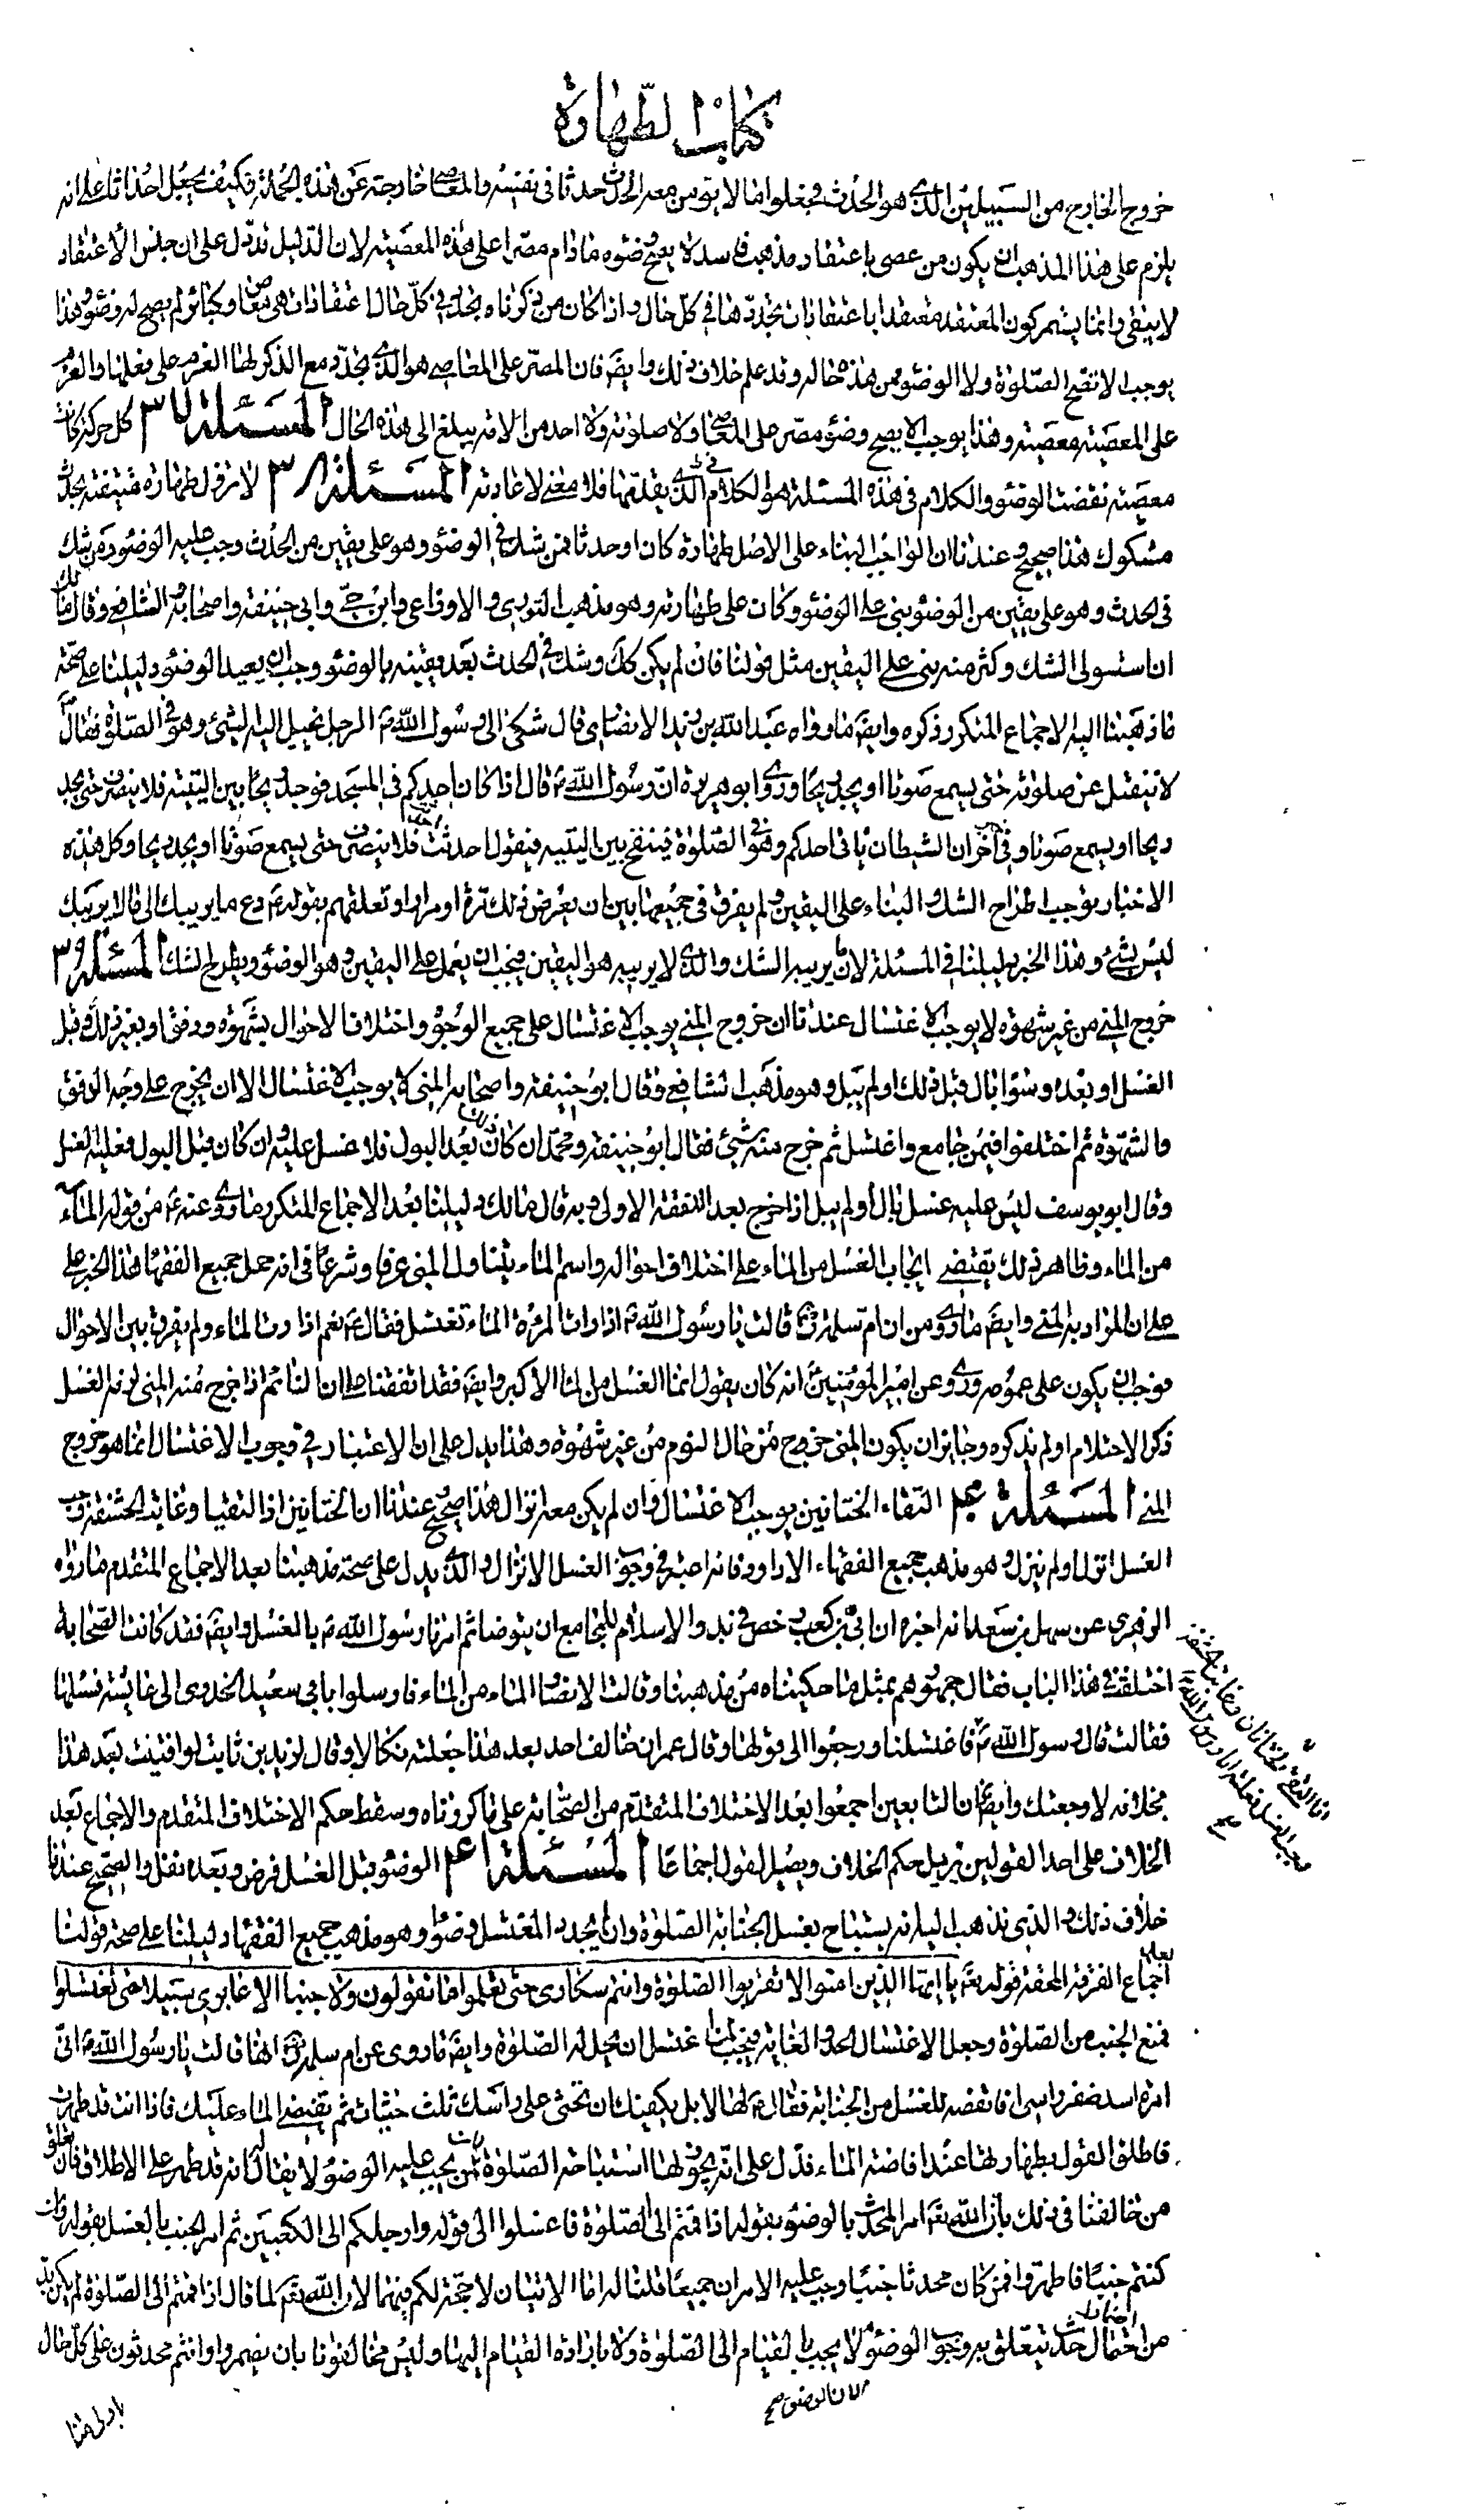 كتاب الطهارة
خروج الخارج من السبيلين الذى هو الحدث فجعلوا ما لا يؤمن معه الحدث حدثا فى نفسه والمعاصى خارجة عن هذه الجملة فكيف يجعل احداثا على انه
يلزم على هذا المذهب ان يكون من عصى باعتقاد مذهب فاسد لا يصح وضوئه مادام مصرا على هذه المعصية لان الدليل قد دل على ان جنس الاعتقاد
لا يبقى وانما يستمر كون المعتقد معتقدا باعتقادات يجددها فى كل حال واذا كان من ذكرناه يجدد فى كل حال اعتقادات هى معاص وكبائر لم يصح له وضوء وهذا
يوجب الا تصح الصلوة ولا الوضوء من هذه حاله وقد علم خلاف ذلك وايضا فان المصر على المعاصى هو الذى يجدد مع الذكر لها العزم على فعلها والعزم
على المعصية معصية وهذا يوجب الا يصح وضوء مصر على المعاصى ولا صلوته ولا احد من الامة يبلغ الى هذه الحال المسئلة ٣٧ كل حركة كانت
معصية نقضت الوضوء والكلام فى هذه المسئلة هو الكلام فى الذى يقدمها فلا معنى لاعادته المسئلة ٣٨ لا تزول طهارة متيقنة بحدث
مشكوك هذا صحيح وعندنا ان الواجب البناء على الاصل طهارة كان او حدثا فمن شك فى الوضوء وهو على يقين من الحدث وجب عليه الوضوء ومن شك
فى الحدث وهو على يقين من الوضوء بنى على الوضوء وكان على طهارته وهو مذهب الثورى والاوزاعى وابن حى وابى حنيفة واصحابه والشافعى وقال مالك
ان استولى الشك وكثر منه بنى على اليقين مثل قولنا فان لم يكن كك وشك فى الحدث بعد يقينه بالوضوء وجب ان يعيد الوضوء دليلنا على صحة
ما ذهبنا اليه الاجماع المتكرر ذكره وايضا ما رواه عبد الله بن زيد الانصارى قال شكى الى رسول الله ص الرجل يخيل اليه الشئ وهو فى الصلوة فقال
لا تنفتل عن صلوته حتى يسمع صوتا او يجد ريحا وروى ابو هريرة ان رسول الله ص قال اذا كان احدكم فى المسجد فوجد ريحا بين اليتيه فلا ينصرف حتى يجد
ريحا او يسمع صوتا وفى خبر اخر ان الشيطان ياتى احدكم وهو فى الصلوة فينفخ بين اليتيه فيقول احدثت احدثت فلا ينصرفن حتى يسمع صوتا او يجد ريحا وكل هذه
الاخبار يوجب اطراح الشك والبناء على اليقين ولم يفرق فى جميعها بين ان يعرض ذلك مرة او مرارا وتعلقهم بقوله ع دع ما يريبك الى ما لا يريبك
ليس بشئ وهذا الخبر دليلنا فى المسئلة لان يريبه الشك والذى لا يريبه هو اليقين فيجب ان يعمل على اليقين وهو الوضوء ويطرح الشك المسئلة ٣٩
خروج المنى من غير شهوة لا يوجب الاغتسال عندنا ان خروج المنى يوجب الاغتسال على جميع الوجوه واختلاف الاحوال بشهوة ودفق او بغير ذلك وقبل
الغسل او بعده وسواء بال قبل ذلك او لم يبل وهو مذهب الشافعى وقال ابو حنيفة واصحابه المنى لا يوجب الاغتسال الا ان يخرج على وجه الدفق
والشهوة ثم اختلفوا فيمن جامع واغتسل ثم خرج منه شئ فقال ابو حنيفة ومحمد ان كان بعد البول فلا غسل عليه وان كان قبل البول فعليه الغسل
وقال ابو يوسف ليس عليه غسل بال او لم يبل اذا خرج بعد الدفقة الاولى وبه قال مالك دليلنا بعد الاجماع المتكرر ما روى عنه ع من قوله الماء
من الماء وظاهر ذلك يقتضى ايجاب الغسل من الماء على اختلاف احواله واسم الماء يتناول المنى عرفا وشرعا فى انه حمل جميع الفقهاء هذا الخبر على
على ان المراد به المنى وايضا ما روى من ان ام سلمة رض قالت يا رسول الله ص اذا رات المرئة الماء تغتسل فقال ع نعم اذا رات الماء ولم يفرق بين الاحوال
فوجب ان يكون على عمومه وروى عن امير المؤمنين ع انه كان يقول انما الغسل من الماء الاكبر وايضا فقد اتفقنا على ان النائم اذا خرج منه المنى لزمه الغسل
ذكر الاحتلام او لم يذكره وجايز ان يكون المنى خروج من حال النوم من غير شهوة وهذا يدل على ان الاعتبار فى وجوب الاغتسال انما هو خروج
المنى المسئلة ۴٠ التقاء الختانين يوجب الاغتسال وان لم يكن معه انزال هذا صحيح عندنا ان الختانين اذا التقيا وغابت الحشفة وجب
الغسل انزل او لم ينزل وهو مذهب جميع الفقهاء الا داود فانه اعتبر فى وجوب الغسل الانزال والذى يدل على صحة مذهبنا بعد الاجماع المتقدم ما رواه
الزهرى عن سهل بن سعد انه اخبره ان ابى بن كعب رخص فى بدو الاسلام للمجامع ان يتوضا ثم امرنا رسول الله ص بالغسل وايضا فقد كانت الصحابة
اختلفت فى هذا الباب فقال جمهورهم بمثل ما حكيناه من مذهبنا وقالت الانصار الماء من الماء فارسلوا بابى سعيد الخدرى الى عايشة فسئلها
فقالت قال رسول الله ص فاغتسلنا ورجعوا الى قولها وقال عمر ان خالف احد بعد هذا جعلته نكالا وقال لزيد بن ثابت لو افتيت بعد هذا
بخلافه لاوجعتك وايضا ان التابعين اجمعوا بعد الاختلاف المتقدم من الصحابة على ما ذكرناه وسقط حكم الاختلاف المتقدم والاجماع بعد
الخلاف على احد القولين يزيل حكم الخلاف ويصير القول اجماعا المسئلة ۴١ الوضوء قبل الغسل فرض وبعده نفل والصحيح عندنا
خلاف ذلك والذى نذهب اليه انه يستباح بغسل الجنابة الصلوة وان لم يجدد المغتسل وضوءا وهو مذهب جميع الفقهاء دليلنا على صحة قولنا
بعد اجماع الفرقة المحقة قوله تع يا ايها الذين امنوا لا تقربوا الصلوة وانتم سكارى حتى تعلموا ما تقولون ولا جنبا الا عابرى سبيل حتى تغتسلوا
فمنع الجنب من الصلوة وجعل الاغتسال الحد والغاية فيجب لمن اغتسل ان تحل له الصلوة وايضا ما روى عن ام سلمة رض انها قالت يا رسول الله ص انى
امرئة اشد ضفر راسى افانقضه للغسل من الجنابة فقال ع لها لا بل يكفيك ان تحثى على راسك ثلث حثيات ثم تفيضى الماء عليك فاذا انت قد طهرت
فاطلق القول بطهارتها عند افاضة الماء فدل على انه يجوز لها استباحة الصلوة من يجب عليه الوضوء لا يقال انه قد طهر على الاطلاق فان تعلق
من خالفنا فى ذلك بان الله تع امر المحدث بالوضوء بقوله اذا قمتم الى الصلوة فاغسلوا الى قوله وارجلكم الى الكعبين ثم امر الجنب بالغسل بقوله وان
كنتم جنبا فاطهروا فمن كان محدثا جنبا وجب عليه الامران جميعا قلنا له اما الايتان لا حجة لكم فيهما لان الله تع لما قال اذا قمتم الى الصلوة لم يكن بد
من اضمار حدث يتعلق به وجوب الوضوء لا يجب بالقيام الى الصلوة ولا بارادة القيام اليها وليس مخالفونا بان يضمروا وانتم محدثون على كل حال
لان الوضوء صح
باولى منا